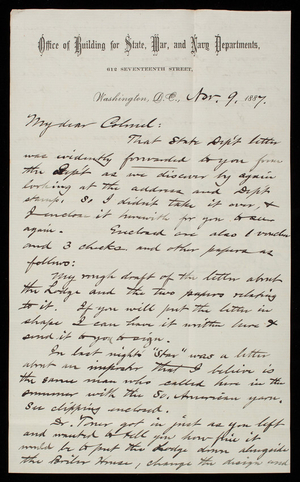 Office of Building for State, War, and Navy Departments,
612 SEVENTEENTH STREET,
Washington, D.C., Nov. 9, 1887.
My dear Colonel:
That State Dep't letter
was evidently forwarded to you from
the Dep't as we discover by again
looking at the address and Dept
stamp. So I didn't take it over, &
I enclose it herewith for you to see
again. Enclosed are also 1 voucher
and 3 checks and other papers as
follows:
My rough draft of the letter about
the Lodge and the two papers relating
to it. If you will put the letter in
shape I can have it written here &
send it to you to sign.
In last night's "Star" was a letter
about an imposter that I believe is
the same man who called here in the
summer with the So. American yarn.
See clipping enclosed.
Dr. Toner got in just as you left
and wanted to tell you how fine it
would be to put the Lodge down alongside
the Boiler House, change the design and